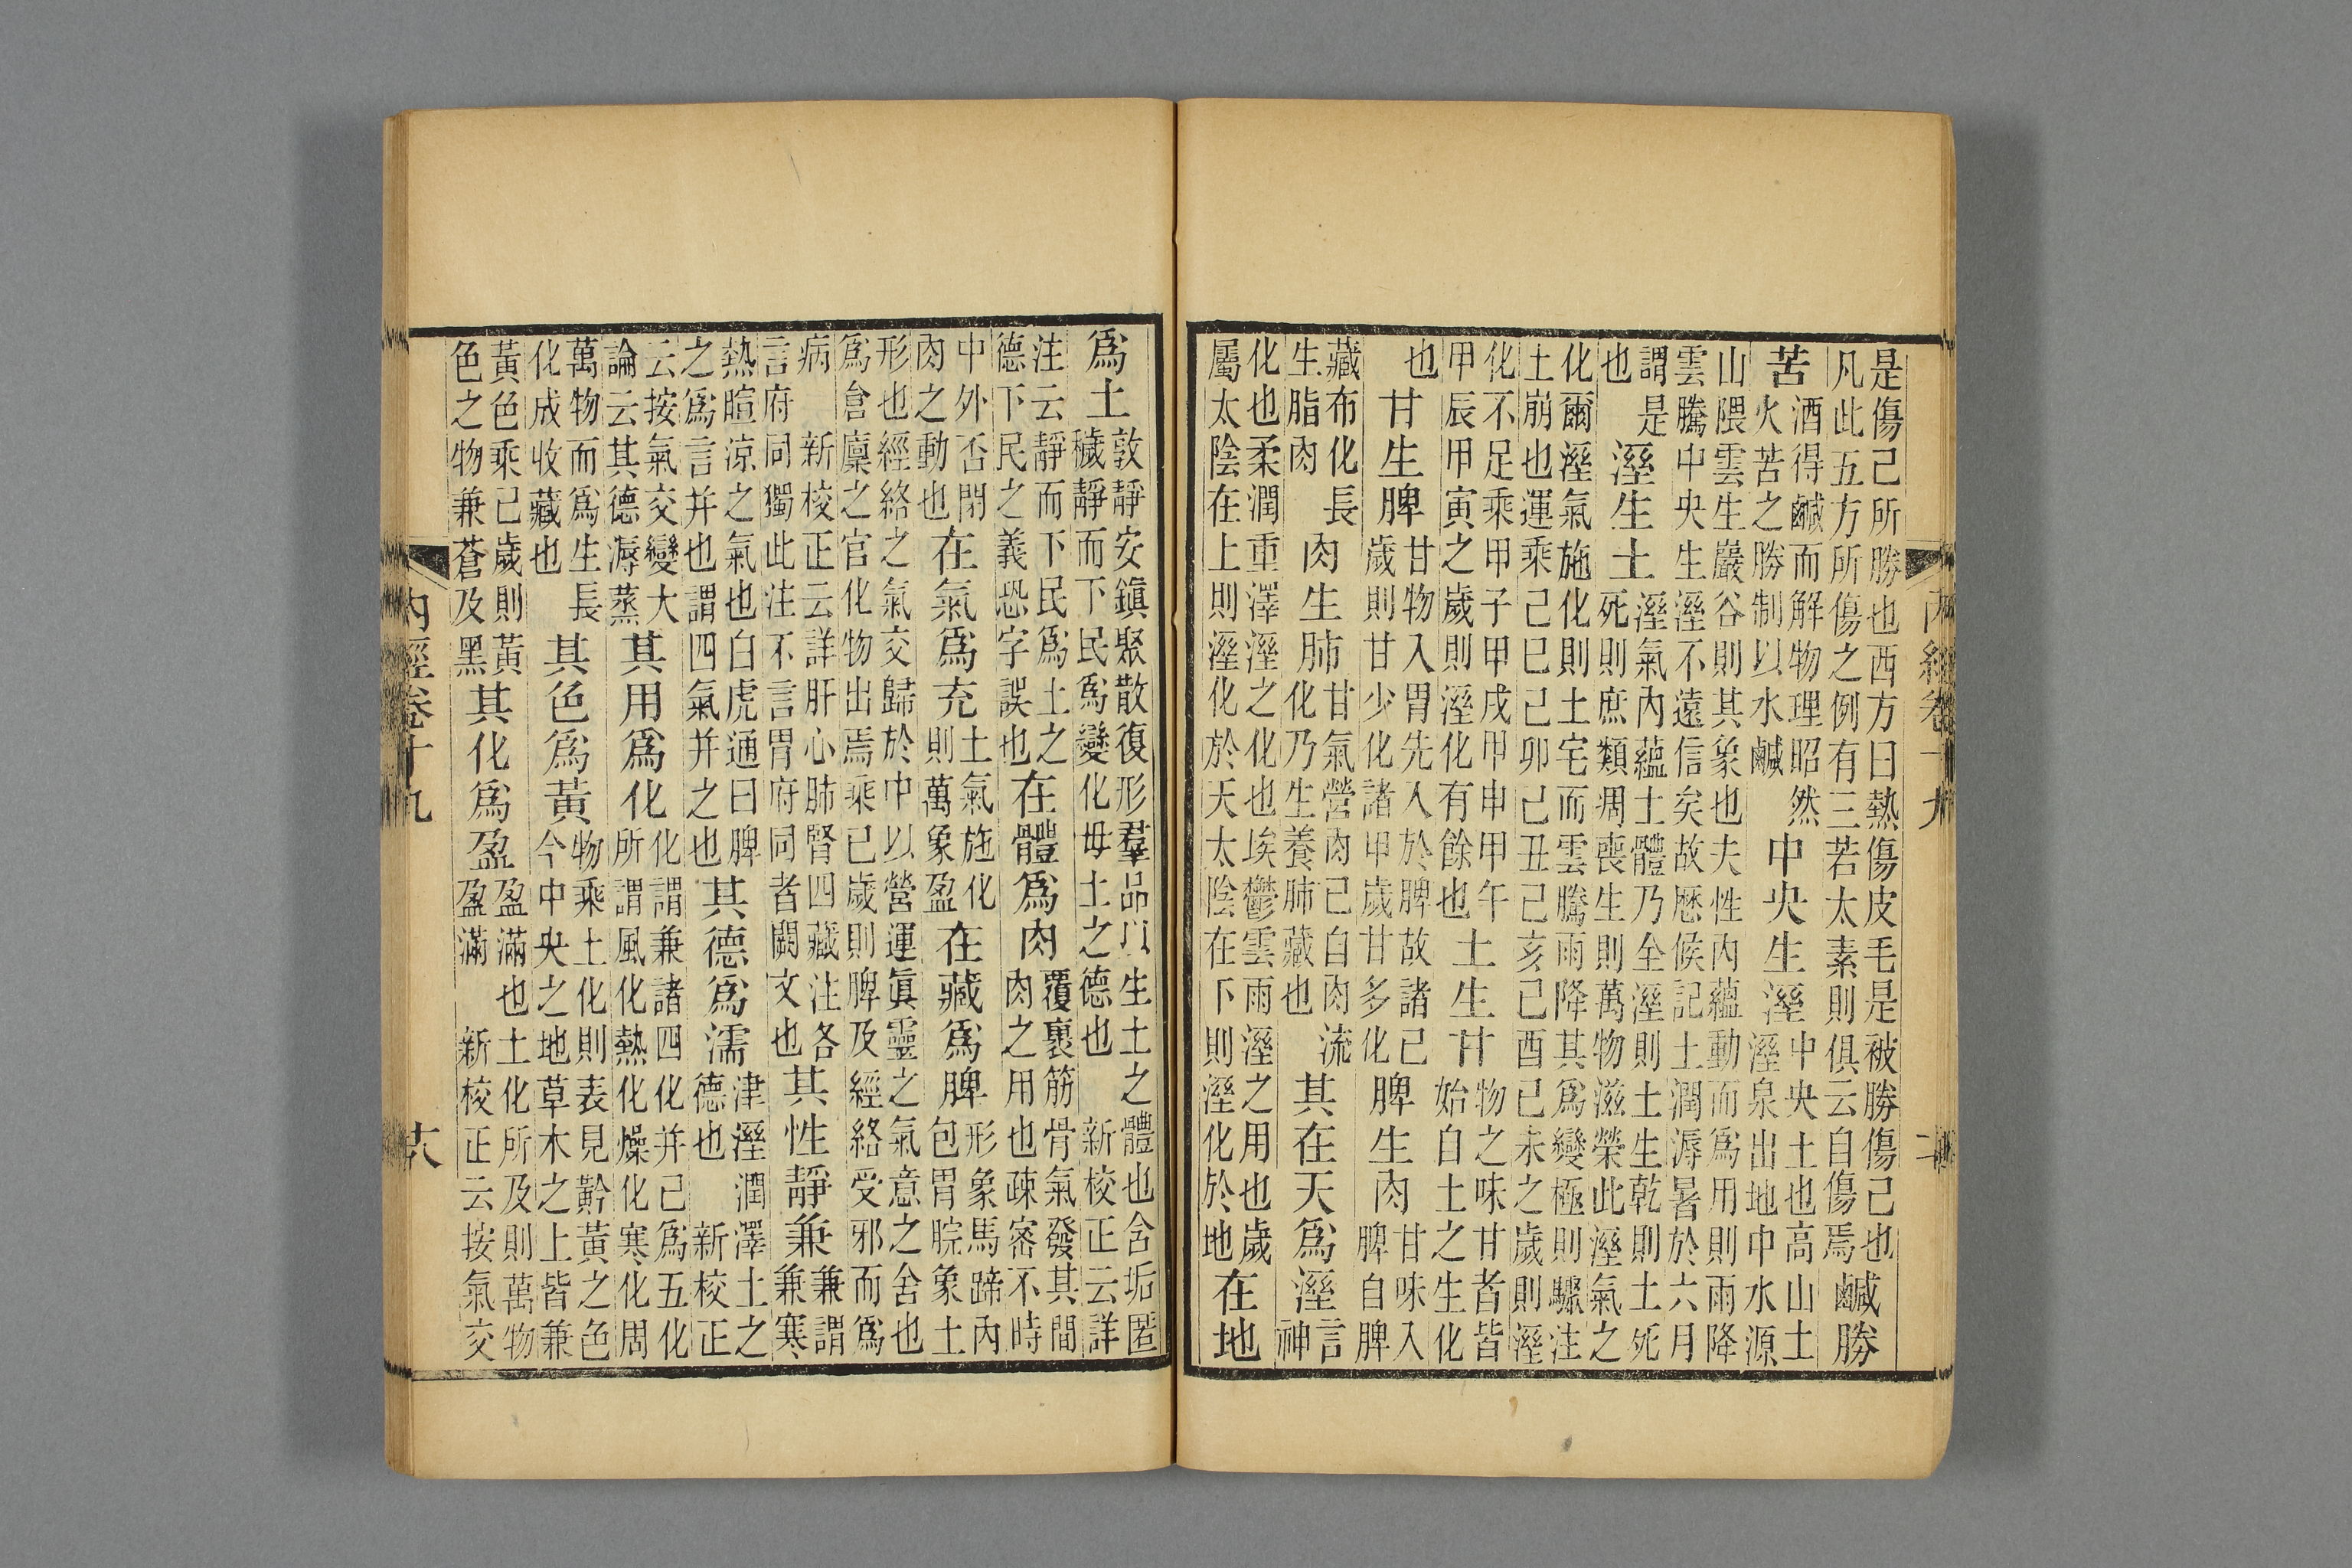 是傷己所勝也西方曰熱傷皮毛是被勝傷己也
凡此五方所傷之例有三若太素則俱云自傷焉
鹹勝
苦
酒得鹹而解物理昭然
火苦之勝制以水鹹
中央生溼
中央土也高山土
溼泉出地中水源
山隈雲生巖谷則其象也夫性內蘊動而爲用則雨降
雲騰中央生溼不遠信矣故歷候記土潤溽暑於六月
謂是
也
溼生土
溼氣內蘊土體乃全溼則土生乾則土死
死則庶類凋喪生則萬物滋榮此溼氣之
化爾溼氣施化則土宅而雲騰雨降其爲變極則驟注
土崩也運乘己巳己卯己丑己亥己酉己未之歲則溼
化不足乘甲子甲戌甲申甲午
甲辰甲寅之歲則溼化有餘也
土生甘
物之味甘者皆
始自土之生化
也
甘生脾
甘物入胃先入於脾故諸己
歲則甘少化諸甲歲甘多化
脾生肉
甘味入
脾自脾
藏布化長
生脂肉
肉生肺
甘氣營肉已自肉流
化乃生養肺藏也
其在天爲溼
言
神
化也柔潤重澤溼之化也埃鬱雲雨溼之用也歲
屬太陰在上則溼化於天太陰在下則溼化於地
在地
爲土
敦靜安鎭聚散復形羣品以生土之體也含垢匿
穢靜而下民爲變化母土之德也 新校正云詳
注云靜而下民爲土之
德下民之義恐字誤也
在體爲肉
覆裹筋骨氣發其間
肉之用也疎密不時
中外否閉
肉之動也
在氣爲充
土氣施化
則萬象盈
在藏爲脾
形象馬蹄內
包胃脘象土
形也經絡之氣交歸於中以營運眞靈之氣意之舍也
爲倉廩之官化物出焉乘己歲則脾及經絡受邪而爲
病 新校正云詳肝心肺腎四藏注各
言府同獨此注不言胃府同者闕文也
其性靜兼
兼謂
兼寒
熱暄涼之氣也白虎通曰脾
之爲言并也謂四氣并之也
其德爲濡
津溼潤澤土之
德也 新校正
云按氣交變大
論云其德溽蒸
其用爲化
化謂兼諸四化并己爲五化
所謂風化熱化燥化寒化周
萬物而爲生長
化成收藏也
其色爲黃
物乘土化則表見黅黃之色
今中央之地草木之上皆兼
黃色乘己歲則黃
色之物兼蒼及黑
其化爲盈
盈滿也土化所及則萬物
盈滿 新校正云按氣交
內經卷十九